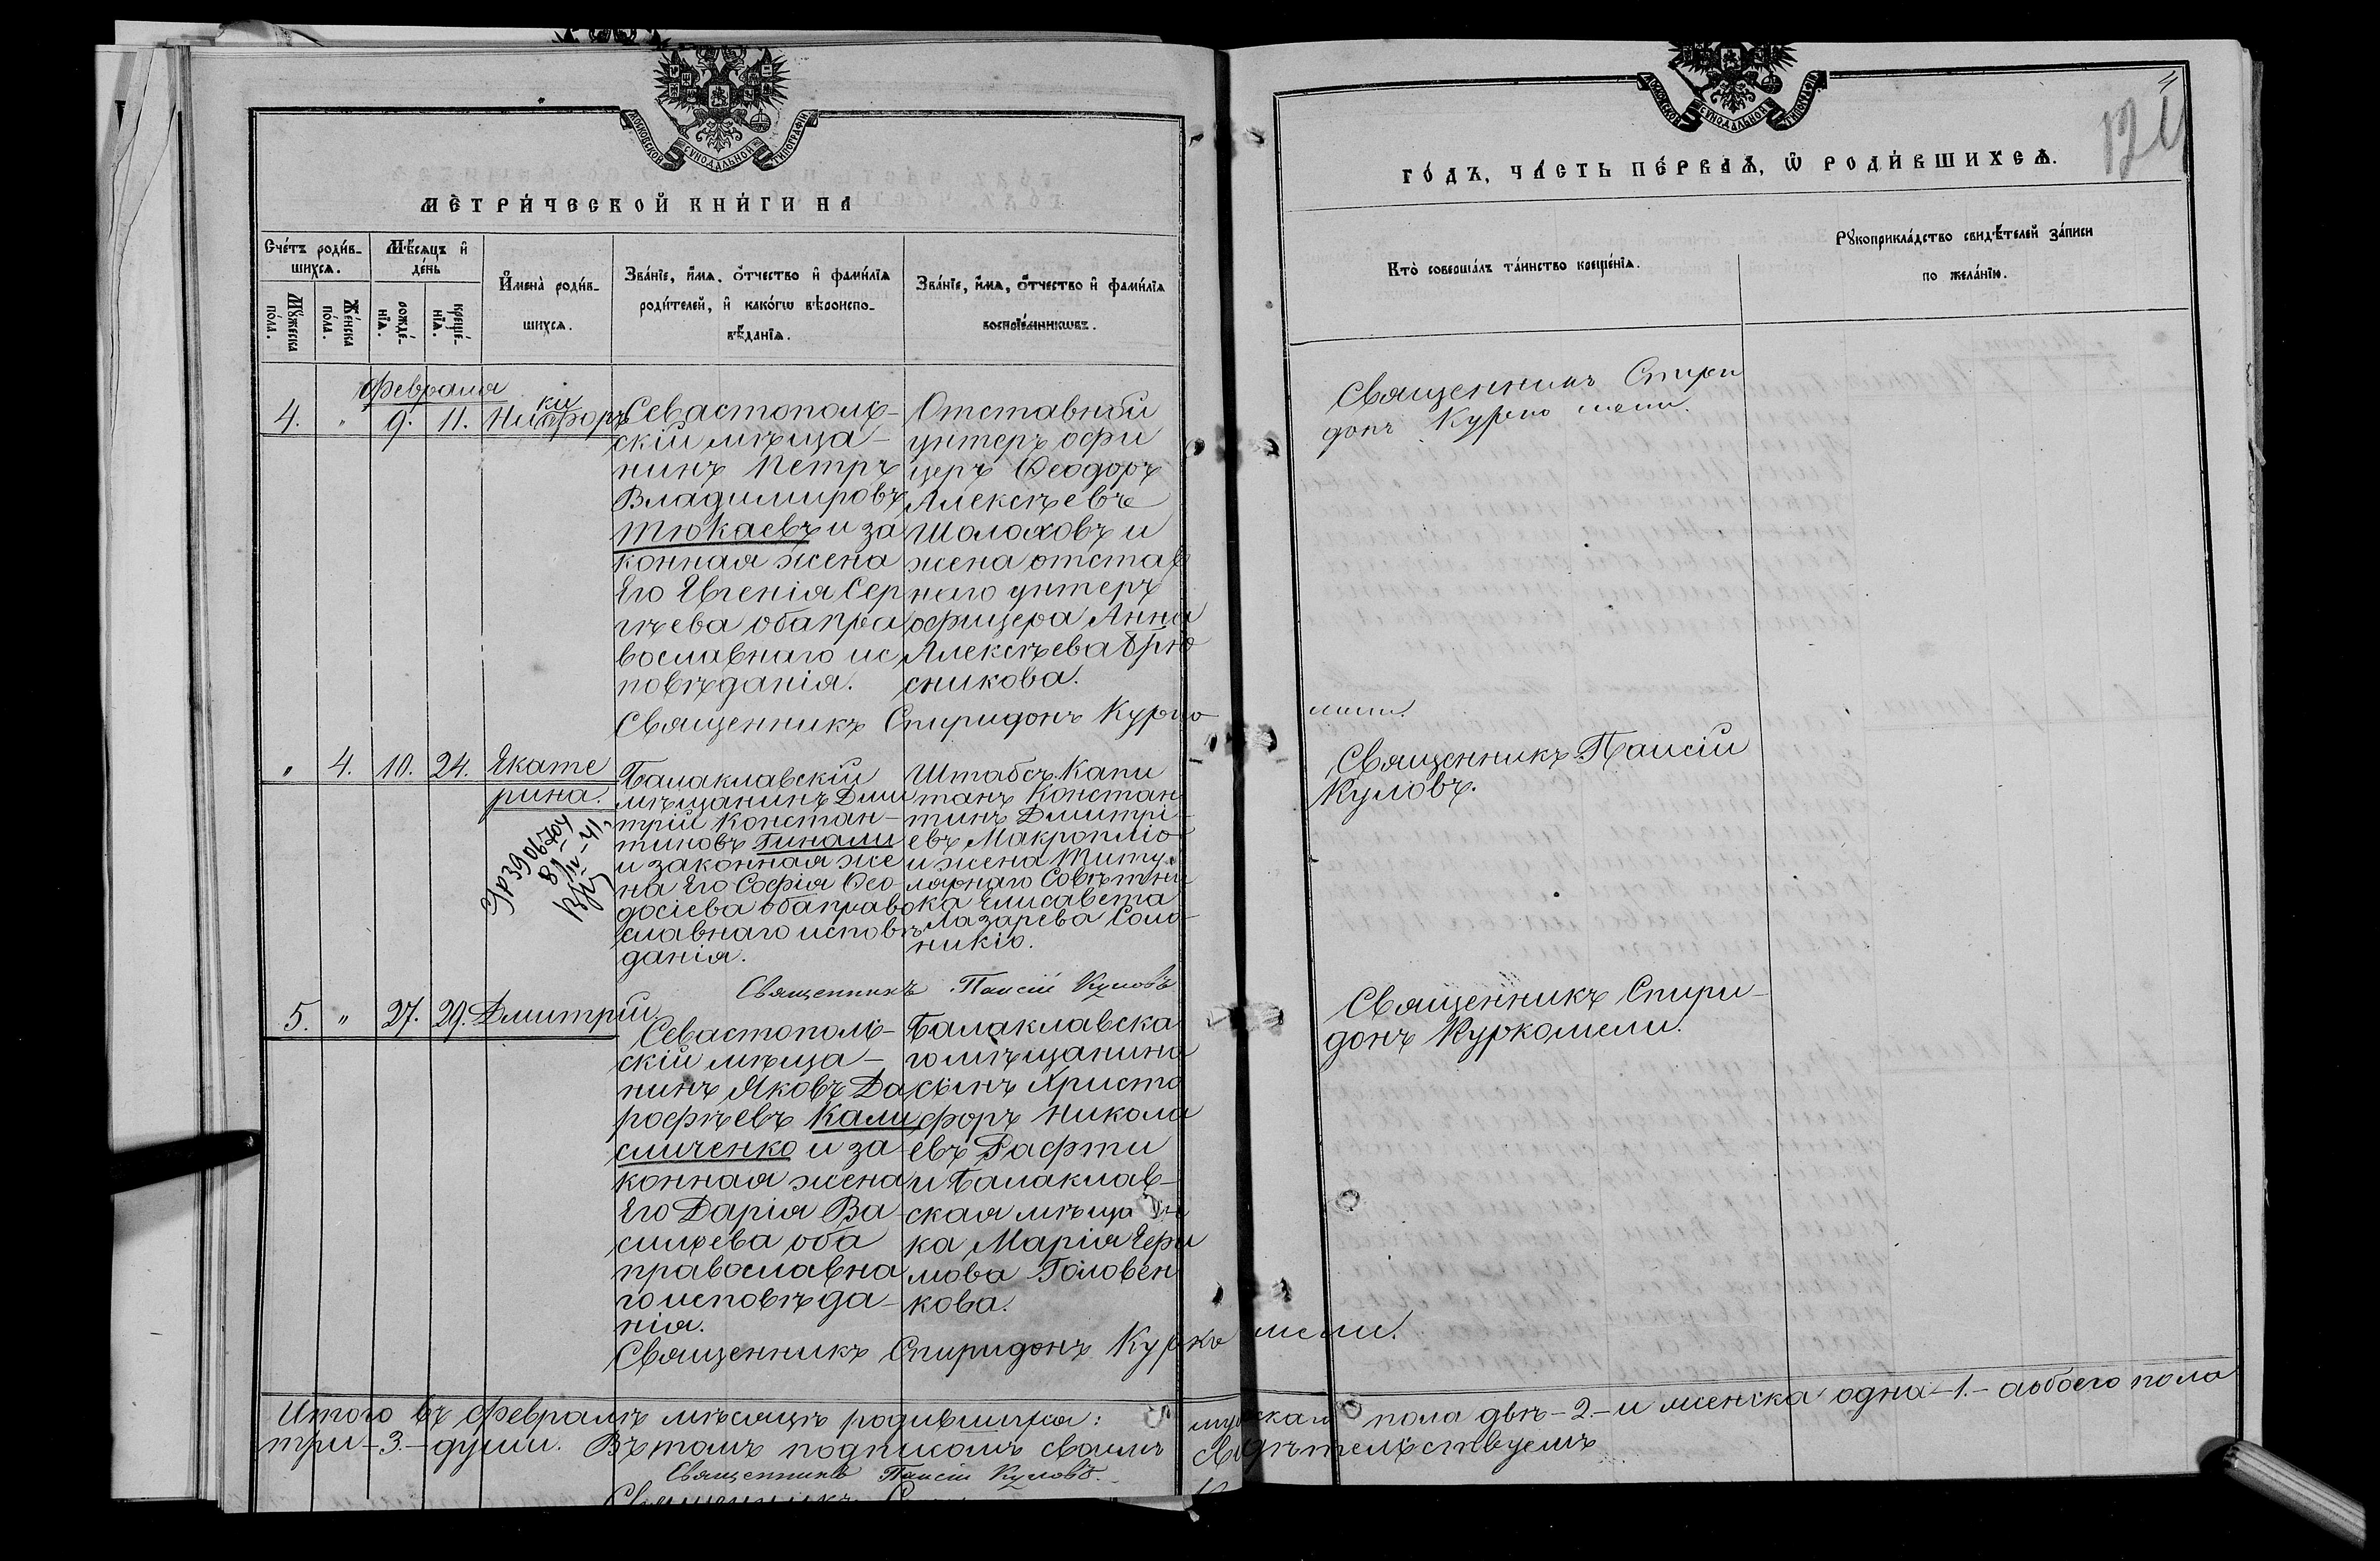 МОСКОВСКОЙ СУНОДАЛЬНОЙ ТИПОГРАФІИ
МЕТРИ́ЧЕСКОЙ КНИ́ГИ НА
Сче́тъ роди́в-
шихсѧ.
Мꙋ́жеска по́ла.
Же́нска по́ла.
Мѣ́сѧцъ и҆ де́нь
рожде́-
нїѧ.
креще́-
нїѧ.
И҆мена̀ роди́в-
шихсѧ.
Зва́нїе, и҆́мѧ, ѻ҆́тчество и҆ фами́лїѧ
роди́телей, и҆ како́гѡ вѣроиспо-
вѣ́данїѧ.
Зва́нїе, и҆́мѧ, ѻ҆́тчество и҆ фами́лїѧ
воспрїе́мникѡвъ.
Февраля
4. " 9. 11. Никифоръ
Севастополь-
скій мѣща-
нинъ Петръ
Владимировъ
Тюкаевъ и за
конная жена
Его Евгенія Сер
гѣева оба пра
вославнаго ис
повѣданія.
Отставной
унтеръ офи
церъ Ѳеодоръ
Алексѣевъ
Шолоховъ и
жена отстав
наго унтеръ
офицера Анна
Алексѣева Брю
сникова.
Священникъ Спиридонъ Курко
" 4. 10. 24. Екате
рина.
8/IV-41.
Балаклавскій
мѣщанинъ Дми
трій Констан-
тиновъ Гинали
и законная же
на Его Софія Ѳео-
досіева оба право
славнаго исповѣ
данія.
Штабсъ-Капи
танъ Констан
тинъ Дмитрі-
евъ Макропліо
и жена Титу-
лярнаго Совѣтни-
ка Елисавета
Лазарева Соло-
никіо.
Священникъ Паисій Куловъ
5. " 27. 29. Дмитрій
Севастополь-
скій мѣща-
нинъ Яковъ До
рофѣевъ Кали
сниченко и за
конная жена
Его Дарія Ва
сильева оба
православна
го исповѣда-
нія.
Балаклавска
го мѣщанина
сынъ Христо
форъ Никола
евъ Рафти
и Балаклав-
ская мѣщан
ка Марія Ефи
мова Головен
кова.
Священникъ Спиридонъ Курко
Итого въ Февралѣ мѣсяцѣ родившихся:
три-3.-души. Въ томъ подписомъ своимъ
Священникъ Паисій Куловъ.
МОСКОВСКОЙ СУНОДАЛЬНОЙ ТИПОГРАФІИ
4
ГО́ДЪ, ЧА́СТЬ ПЕ́РВАѦ, Ѡ҆ РОДИ́ВШИХСѦ.
Кто̀ соверша́лъ та́инство креще́нїѧ.
Рꙋкоприкла́дство свидѣ́телей за́писи
по жела́нїю.
Священникъ Спири
донъ Куркомели.
мели.
Священникъ Паисій
Куловъ.
Священникъ Спири-
донъ Куркомели.
мели.
мужскаго пола двѣ-2.-и женска одна-1.-а обоего пола
свидѣтельствуемъ